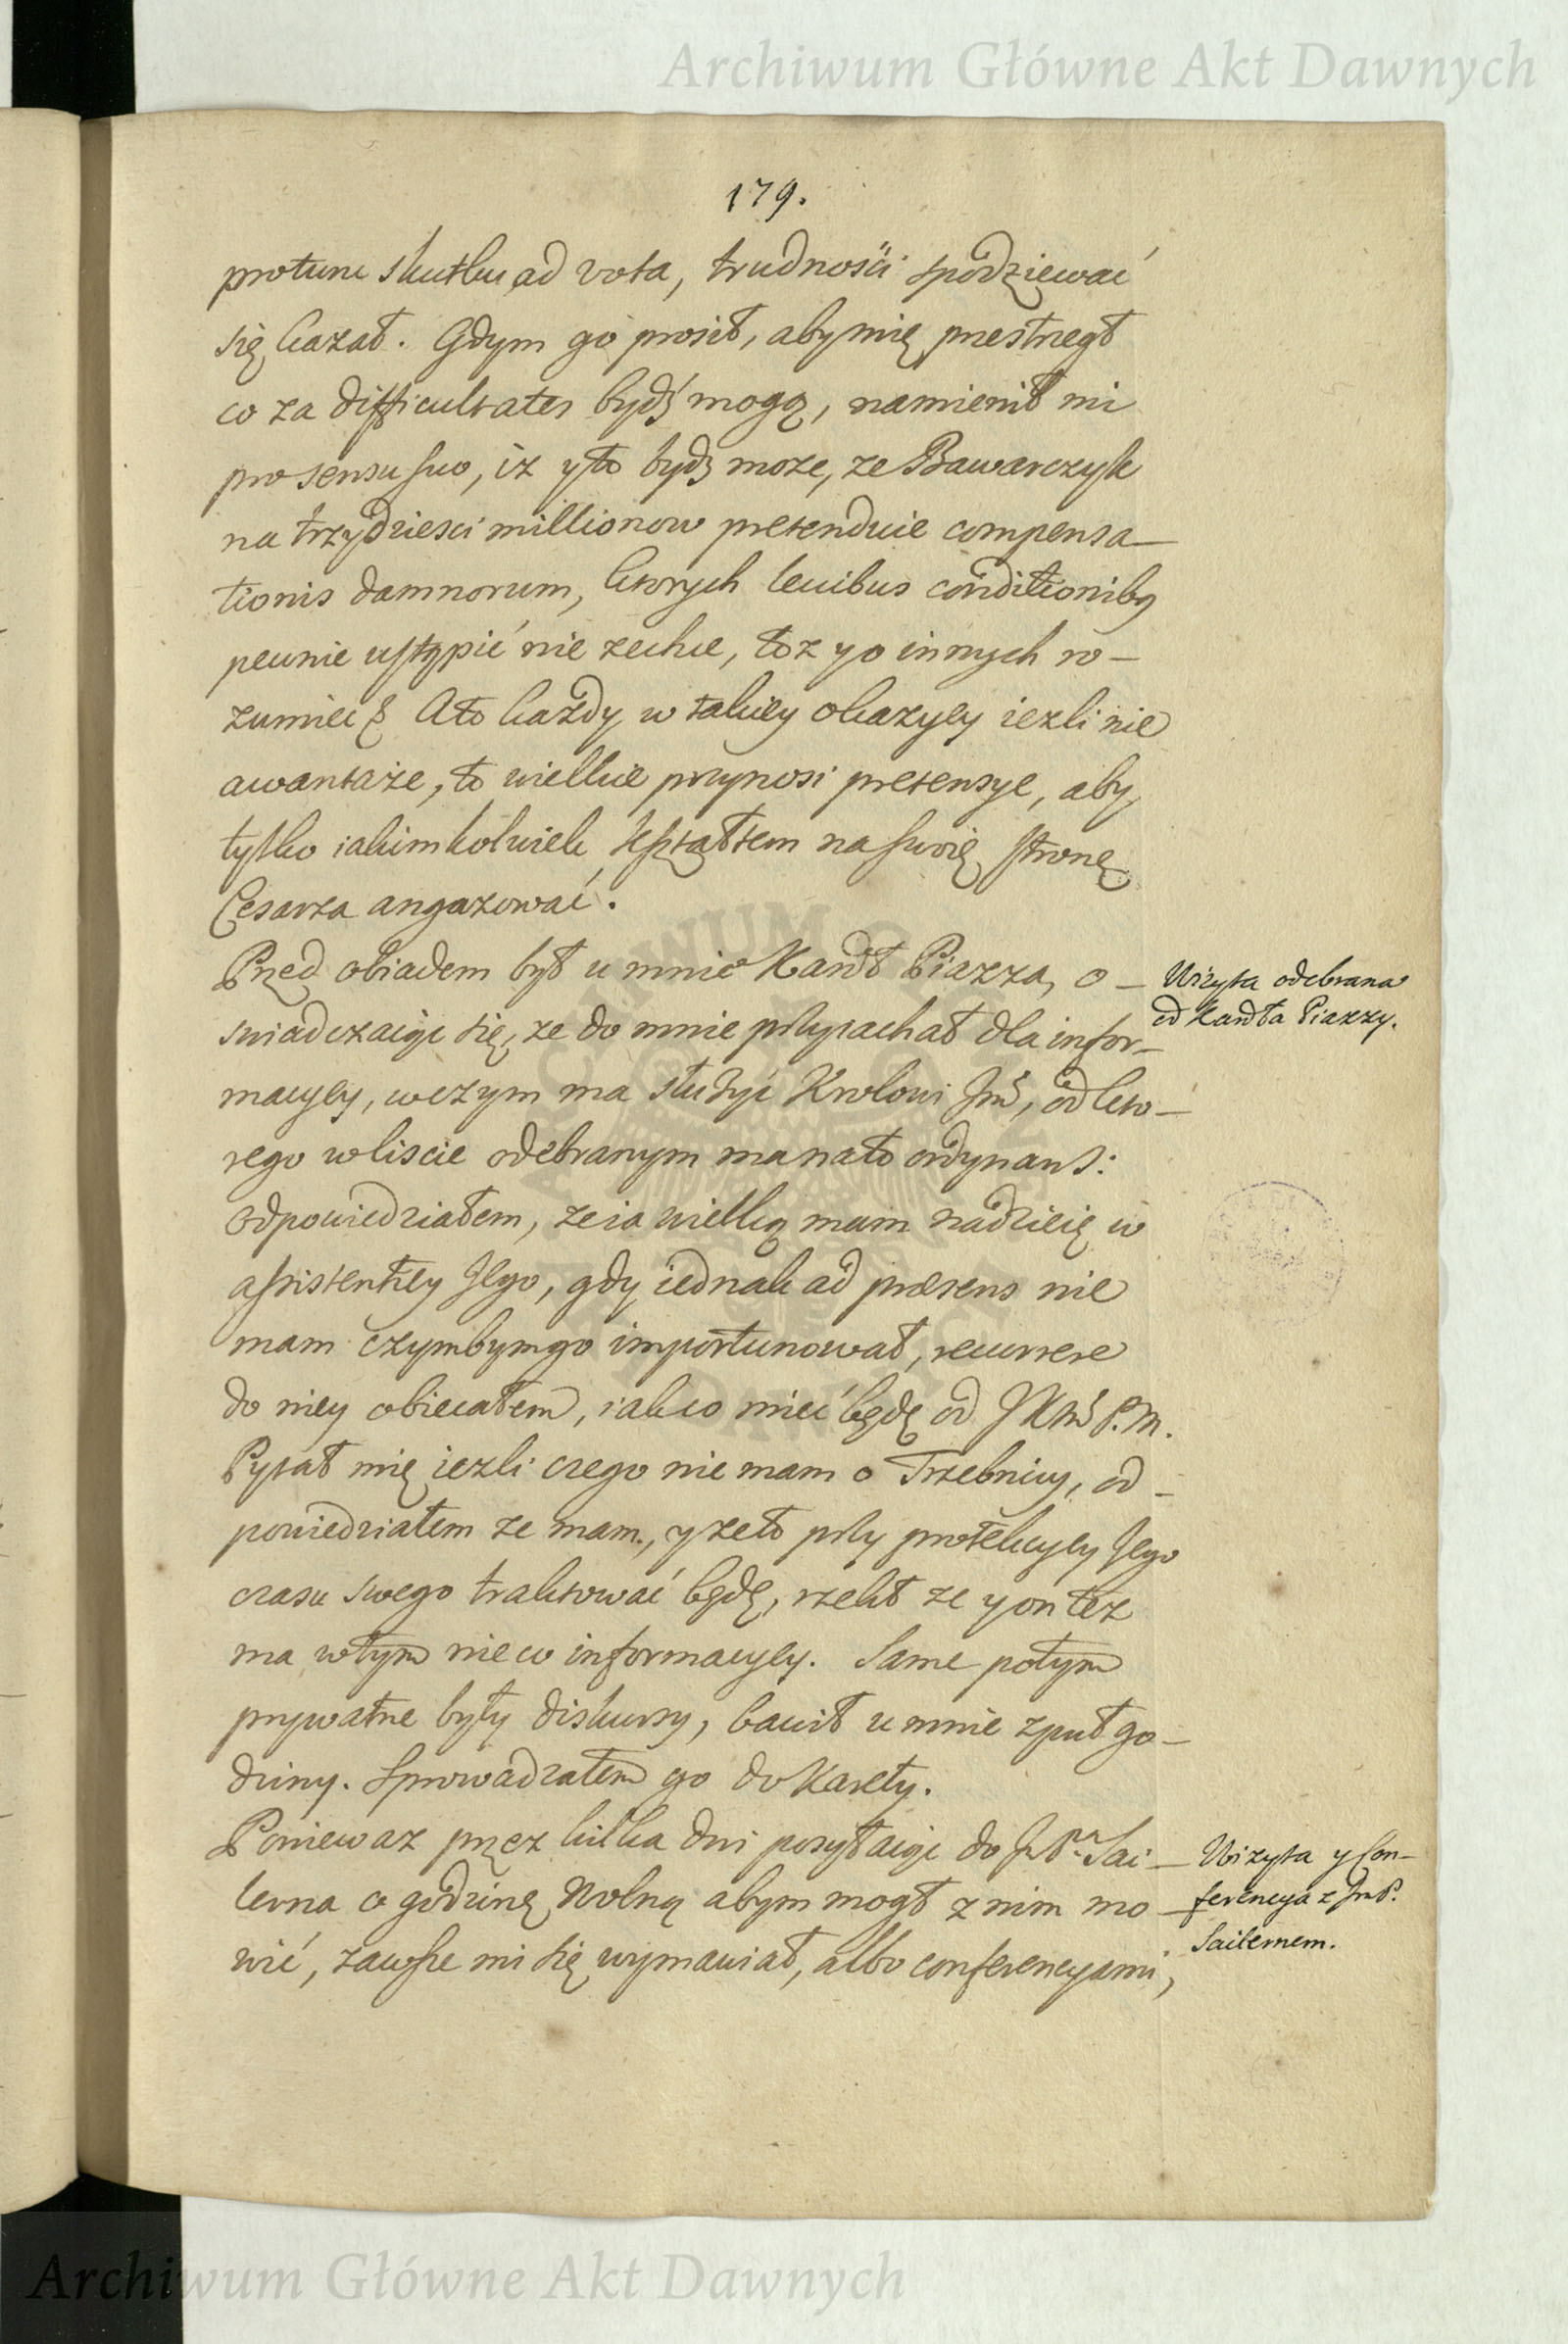 Archiwum Główne Akt Dawnych
179.
skutku ad vota, trudnośći spodziewać
się kazał. Gdym go prosił, aby mię przestrzegł
co za difficultates bydź mogą, namienił mi
pro sensu suo, iż y to bydz moze, ze Bawarczyk
na trzydziesci millionow pretenduie compensa–
tionis damnorum, ktorych leuibus conditionibq
pewnie ustąpić nie zechce, toz y o innych ro–
zumieć A to kazdy w takiey okazyey iezli nie
awantaże, to wielkie przynosi pretensye, aby
tylko iakimkolwiek kształtem na swoię stronę
Cesarza angazować.
Przed obiadem był u mnie Kardł Piazza, o–
swiadczaiąc się, ze do mnie przyiachał dla infor–
macyey, w czym ma służyć Krolowi Jmć, od kto–
rego w liscie odebranym ma na to ordynans:
odpowiedziałem, ze ia wielką mam nadzieię w
assistentiey Jego, gdy iednak ad præsens nie
mam czymbym go importunował, recurrere
do niey obiecałem, iak co mieć będę od JKMć P. M.
Pytał mię iezli czego nie mam o Trzebnicy, od–
powiedziałem ze mam, y ze to przy protekcyey Jego
czasu swego traktować będę, rzekł ze y on tez
ma w tym nieco informacyey. Same potym
prywatne były diskursy, bawił u mnie z puł go–
dziny. Sprowadzałem go do Karety.
Poniewaz przez kilka dni posyłaiąc do JmPna Sai–
lerna o godzinę wolną abym mogł z nim mo–
wić, zawsze mi się wymawiał, albo conferencyami,
Wizyta odebrana
od Kardła Piazzy.
Wizyta y Con–
ferencya z JmP.
Sailernem.
Archiwum Główne Akt Dawnych